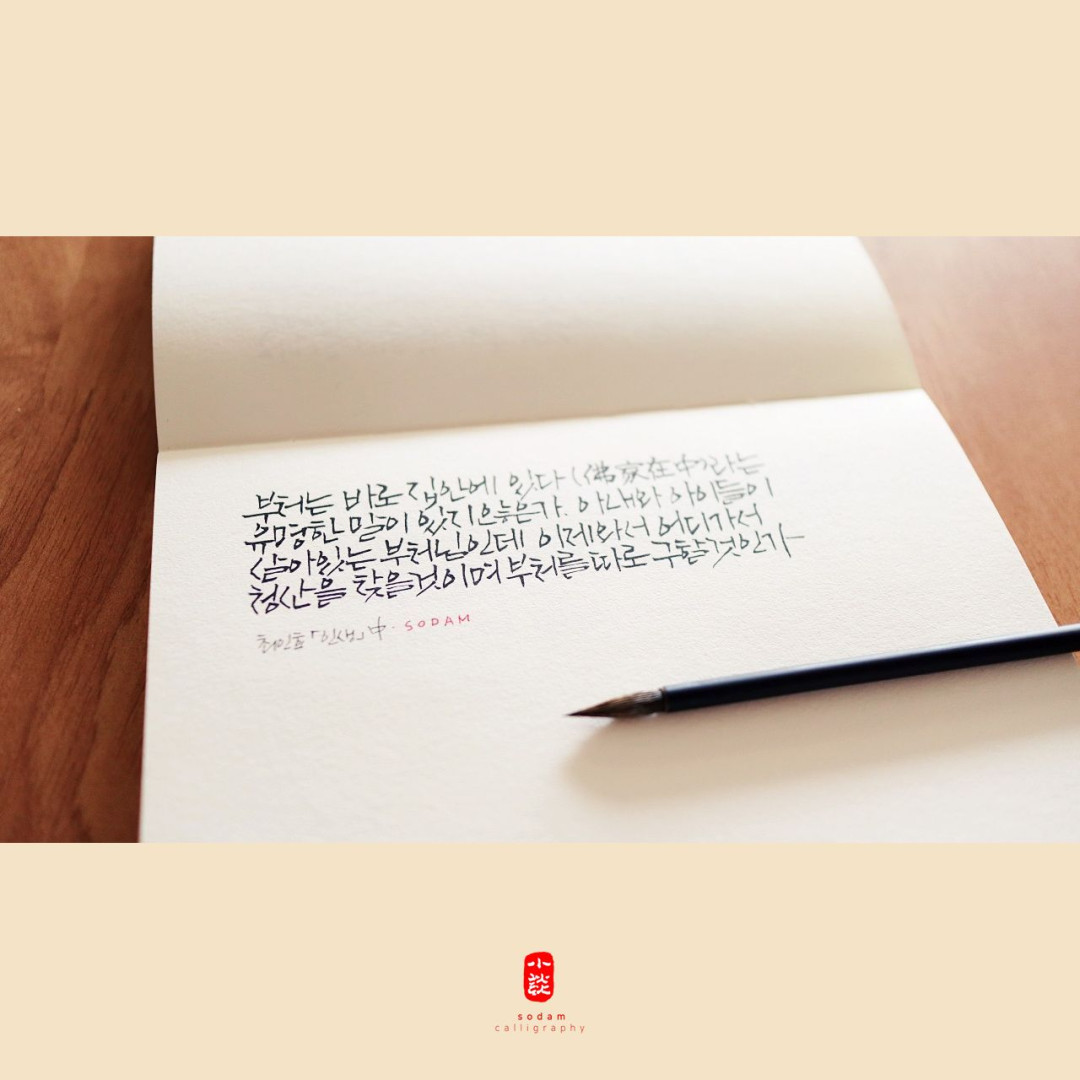 부처는 바로 집안에 있다 (佛家在中)라는
유명한 말이 있지 않은가. 아내와 아이들이
살아있는 부처님인데 이제와서 어디가서
청산을 찾을것이며 부처를 따로 구할것인가
최인호 「인생」 中. SODAM
小談
sodam
calligraphy